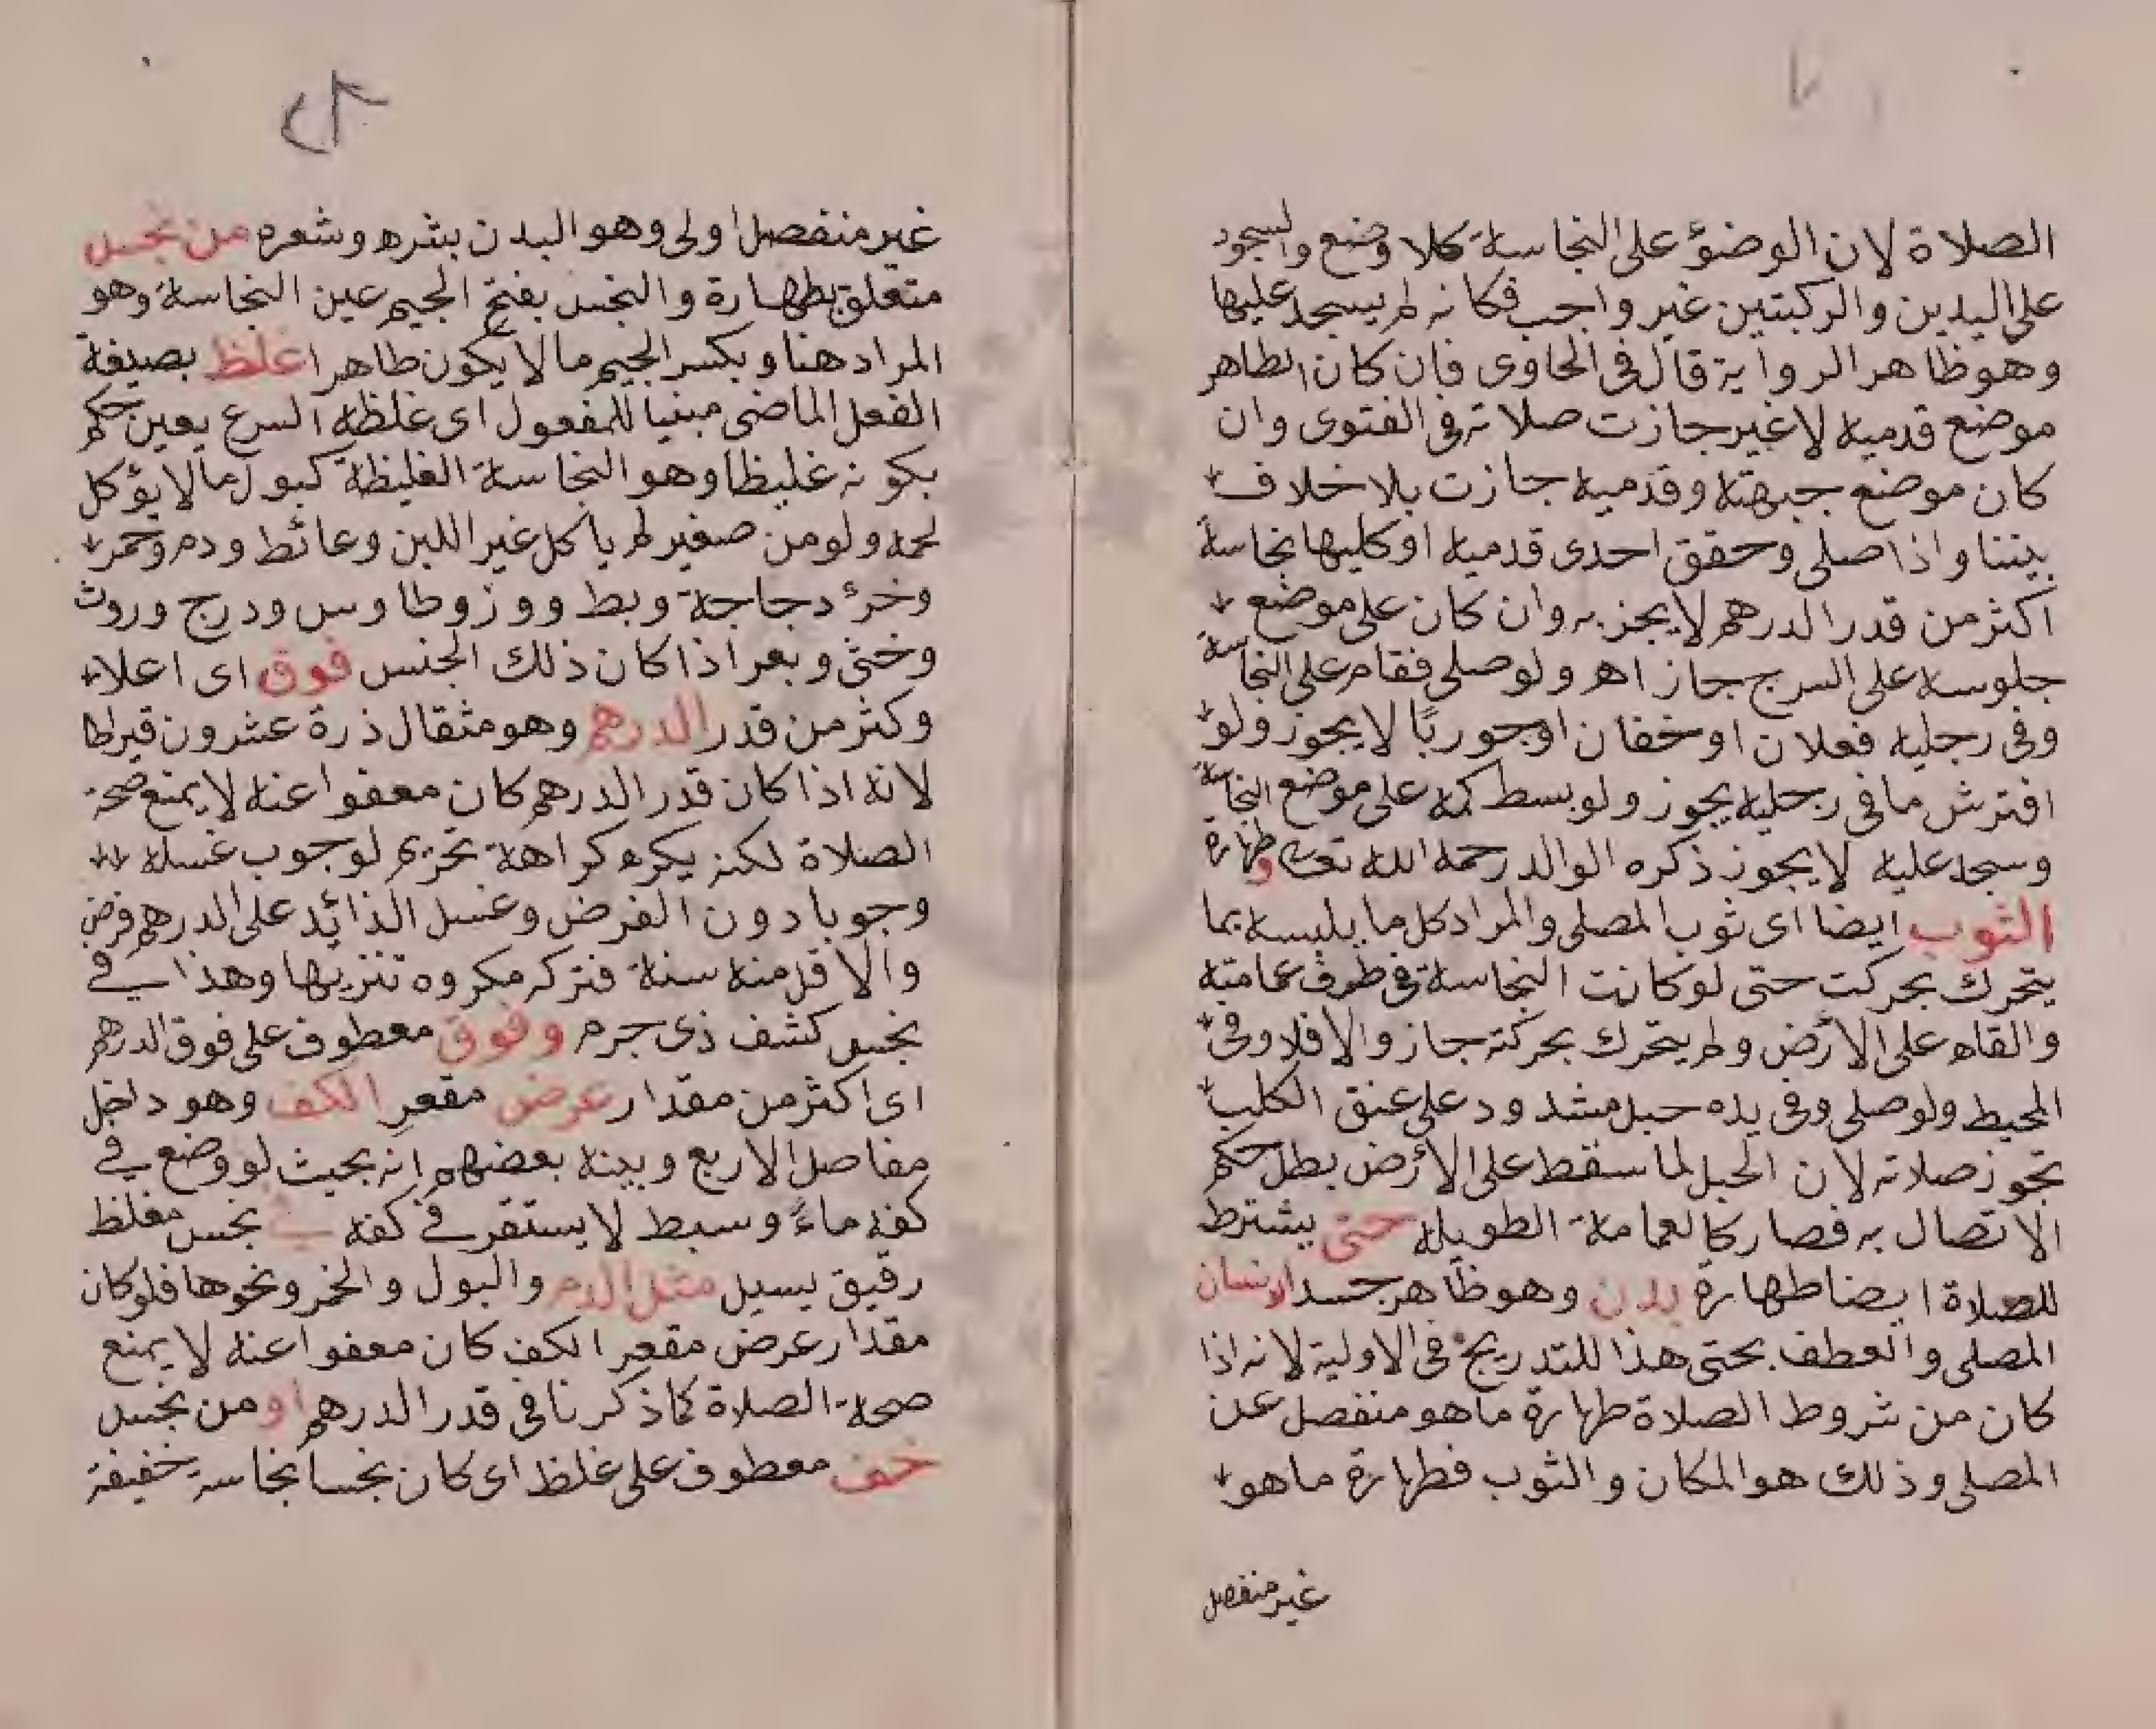 الصلاة لان الوضؤ على النجاسة كلا وضع والسجود
على اليدين والركبتين غير واجب فكانه لم يسجد عليها
وهو ظاهر الرواية قال في الحاوى فان كان الطاهر
موضع قدميه لا غير جازت صلاته في الفتوى وان
كان موضع جبهته وقدميه جازت بلا خلاف
بيننا واذا صلى وحقق احدى قدميه او كليها نجاسة
اكثر من قدر الدرهم لا يجزيه وان كان على موضع
جلوسه على السرج جاز اهـ ولو صلى فقام على النجاسة
وفي رجليه فعلان او خفان او جوربا لا يجوز ولو
افترش ما في رجليه يجوز ولو بسط كمه على موضع النجاسة
وسجد عليه لا يجوز ذكره الوالد رحمه الله تعا وطهارة
الثوب ايضا اى ثوب المصلى والمراد كل ما يلبسه بما
يتحرك بحركت حتى لو كانت النجاسة في طرف عمامته
والقاه على الأرض ولم يتحرك بحركته جاز والا فلا وفي
المحيط ولو صلى وفي يده حبل مشدود على عنق الكلب
تجوز صلاته لان الحبل لما سقط على الأرض بطل حكم
الاتصال به فصار كالعمامة الطويلة حتى يشترط
للصلاة ايضا طهارة بدن وهو ظاهر جسد الانسان
المصلى والعطف بحتى هذا للتدريج في الاولية لانه اذا
كان من شروط الصلاة طهارة ما هو منفصل عن
المصلى وذلك هو المكان والثوب فطهارة ما هو
غير منفصل
غير منفصل اولى وهو البدن بشره وشعره من نجس
متعلق بطهارة والنجس بفتح الجيم عين النجاسة وهو
المراد هنا وبكسر الجيم ما لا يكون طاهرا غلظ بصيغة
الفعل الماضى مبنيا للمفعول اى غلظه السرع يعين حكم
بكونه غليظا وهو النجاسة الغليظة كبول ما لا يؤكل
لحمه ولو من صغير لم ياكل غير اللبن وعائط ودم وخمر
وخرء دجاجة وبط ووز وطاوس ودرج وروث
وخثى وبعر اذا كان ذلك الجنس فوق اى اعلاء
وكثر من قدر الدرهم وهو مثقال ذرة عشرون قيراطا
لانه اذا كان قدر الدرهم كان معفوا عنه لا يمنع صحة
الصلاة لكنه يكره كراهة تحريم لوجوب غسله
وجوبا دون الفرض وغسل الذائد على الدرهم فرض
والاقل منه سنة فتركه مكروه تنزيها وهذا في
نجس كشف ذى جرم وفوق معطوف على فوق الدرهم
اى اكثر من مقدار عرض مقعر الكف وهو داخل
مفاصل الاربع وبينه بعضهم انه بحيث لو وضع في
كفه ماءً وسبط لا يستقر في كفه في نجس مغلظ
رقيق يسيل مثل الدم والبول والخمر ونحوها فلو كان
مقدار عرض مقعر الكف كان معفوا عنه لا يمنع
صحة الصلاة كما ذكرنا في قدر الدرهم او من نجس
خف معطوف على غلظ اى كان نجسا نجاسة خفيفة